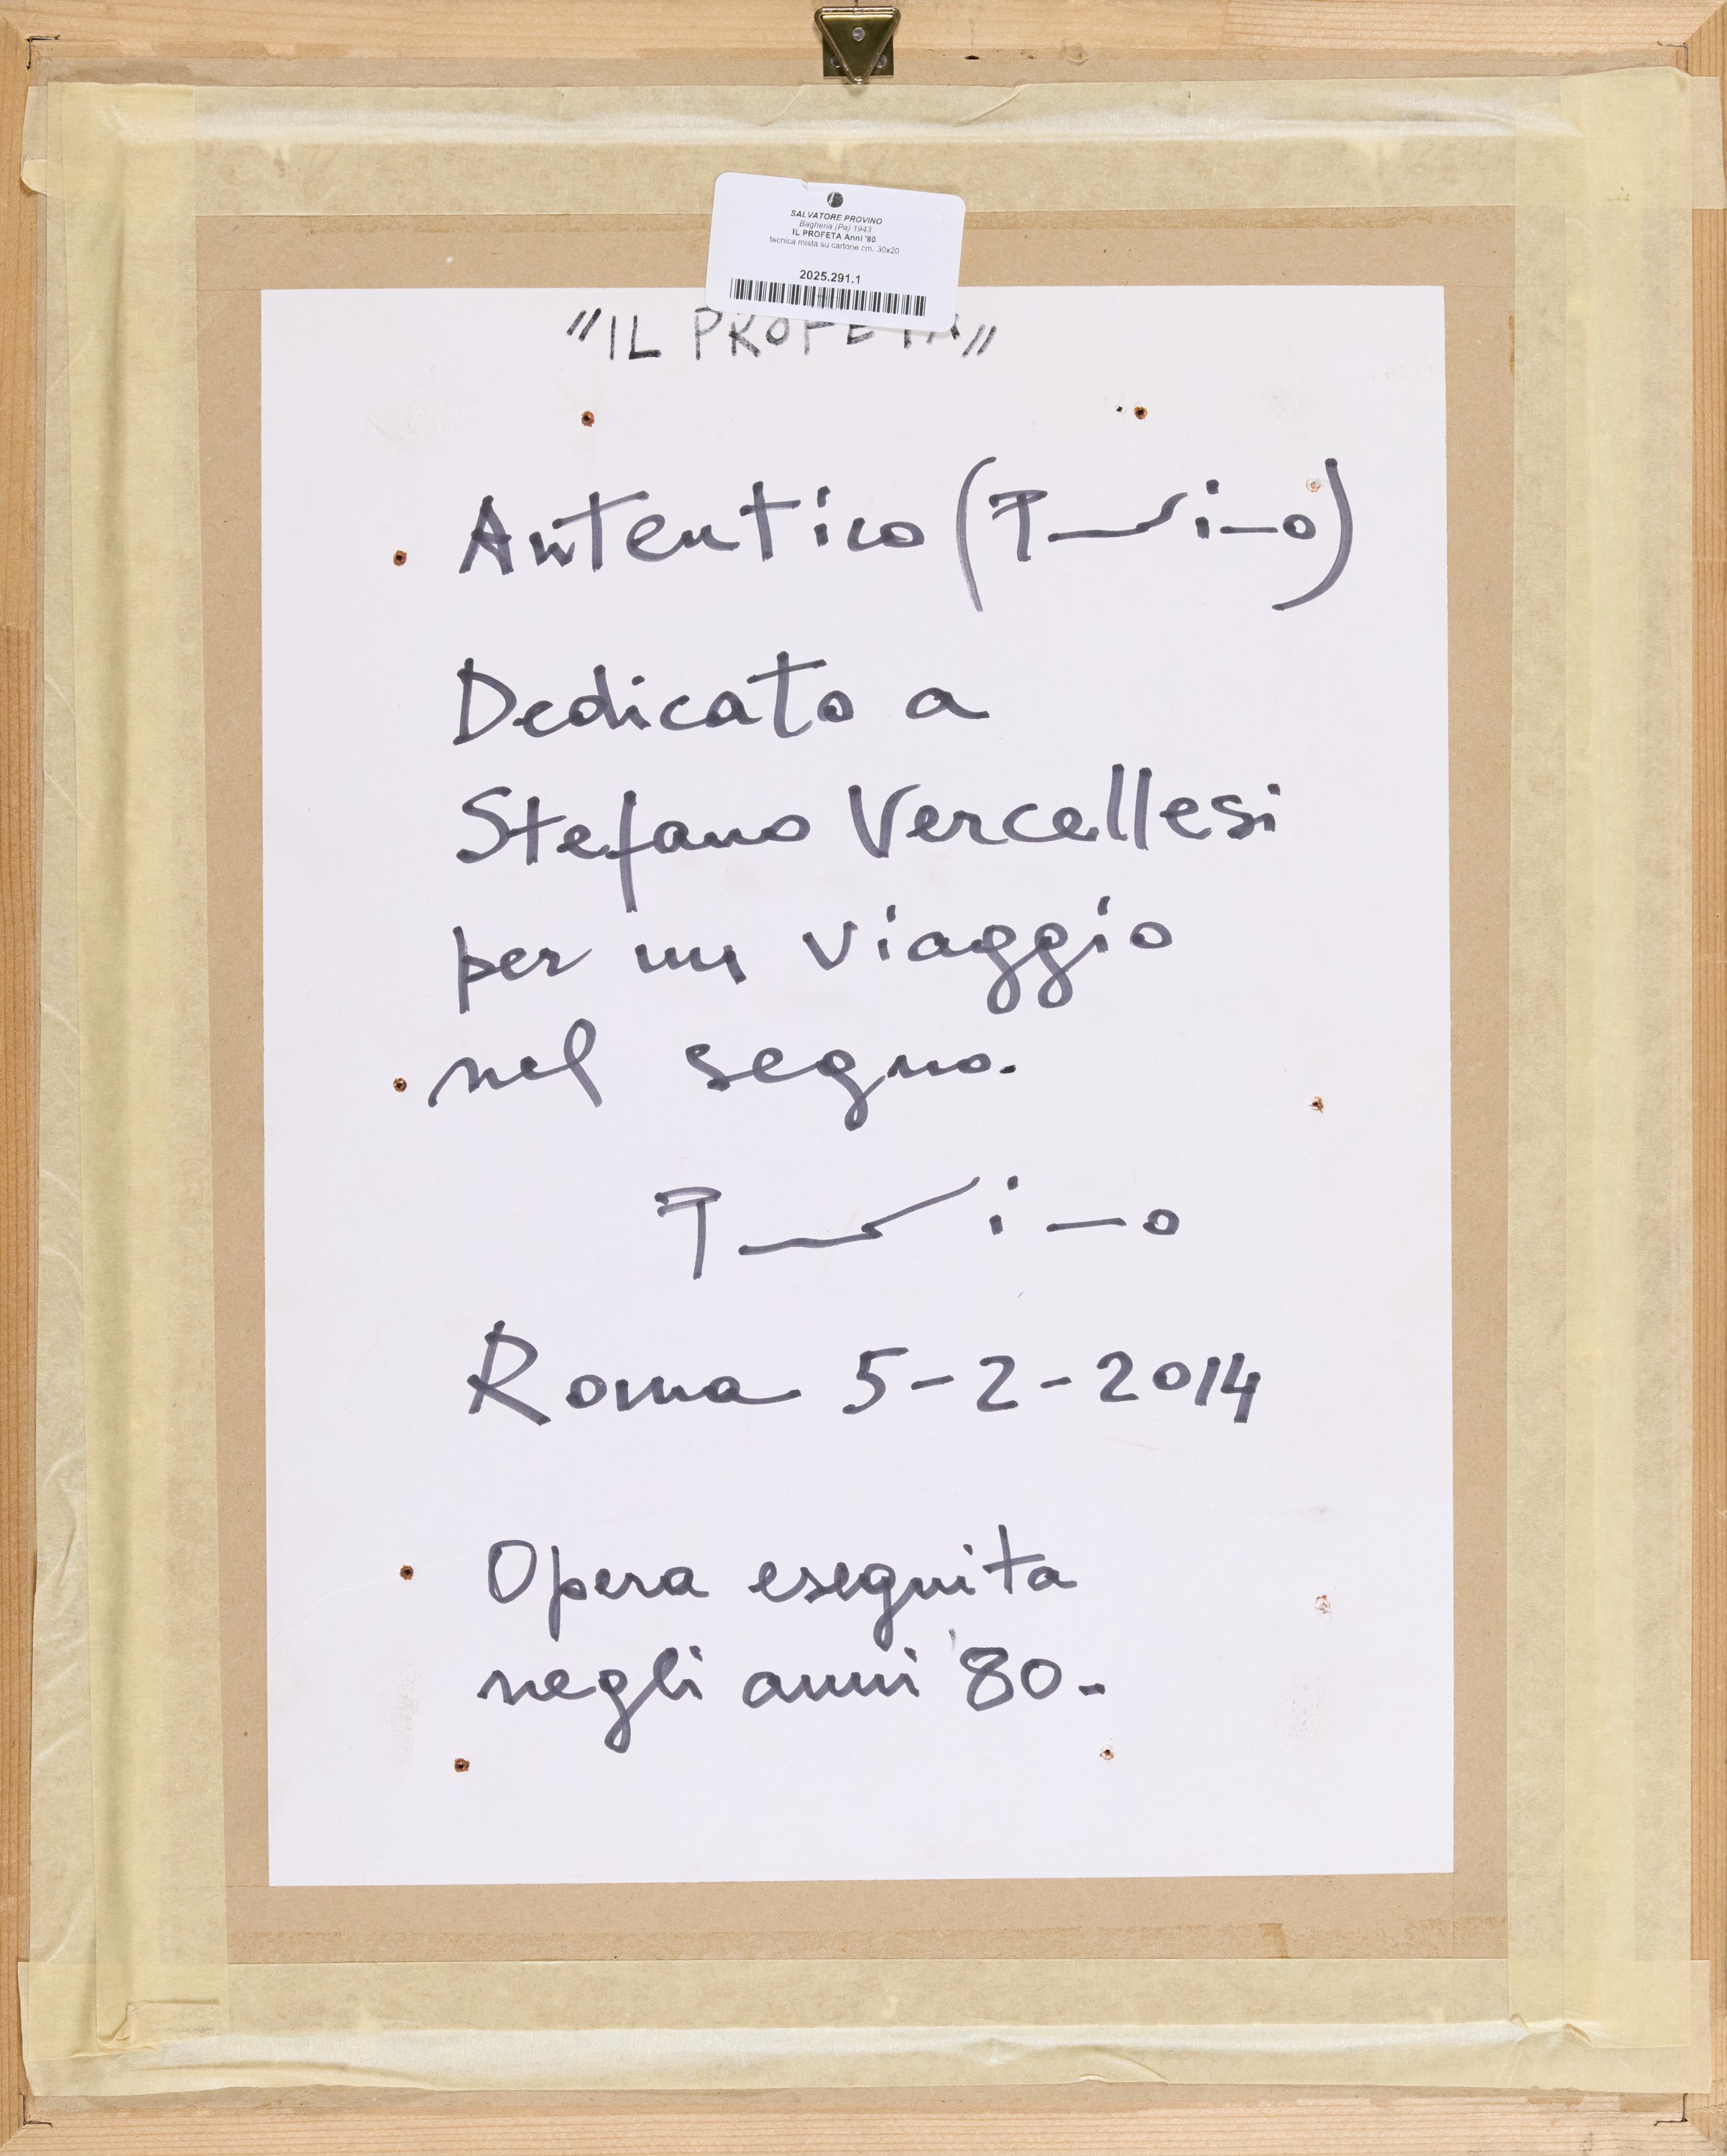 SALVATORE PROVINO
Bagheria (Pa) 1943
IL PROFETA Anni '80
tecnica mista su cartone cm. 30x20
2025.291.1
"IL PROFETA"
Autentico (Provino)
Dedicato a
Stefano Vercellesi
per un viaggio
nel segno.
Provino
Roma 5-2-2014
Opera eseguita
negli anni '80-